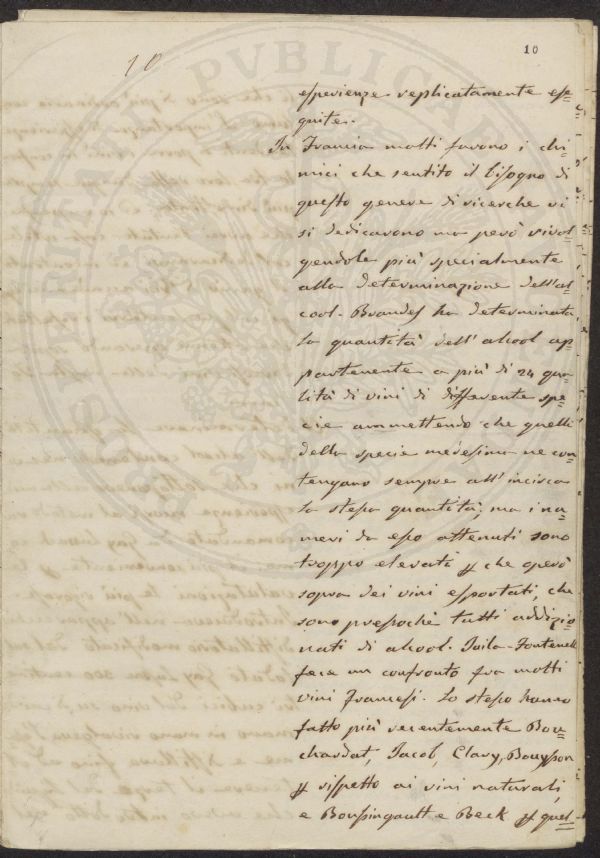 10
10
esperienze replicatamente ese-
guite.
In Francia molti furono i chi-
mici che sentito il bisogno di
questo genere di ricerche vi
si dedicarono ma però rivol-
gendole più specialmente
alla determinazione dell'al
cool. Brandes ha determinata
la quantità dell'alcool ap-
partenente a più di 24 qua-
lità di vini di differente spe-
cie ammettendo che quelli
della specie medesima ne con-
tengano sempre all'incirca
la stessa quantità; ma i nu-
meri da esso ottenuti sono
troppo elevati che operò
sopra dei vini esportati, che
sono pressochè tutti addizio-
nati di alcool. Julia-Fontenell
fece un confronto fra molti
vini Francesi. Lo stesso hanno
fatto più recentemente Bou-
chardat, Jacob, Clary, Bouysson
rispetto ai vini naturali,
e Boussingault e Beck quel-
PUBLICAE